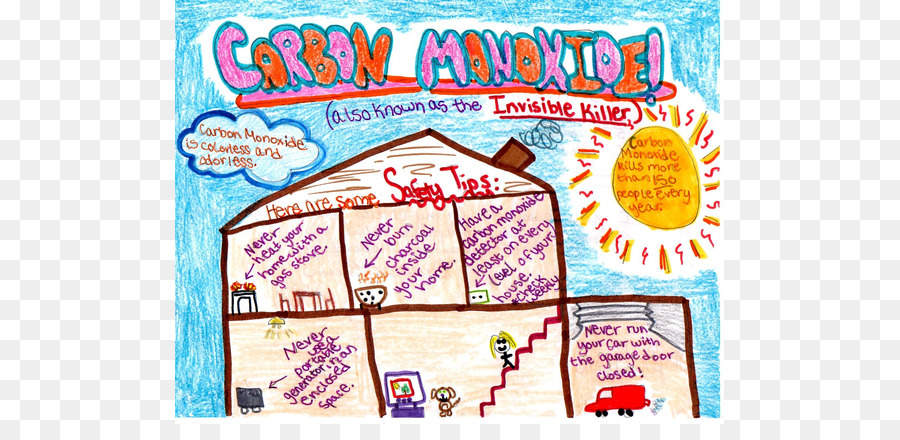 CARBON MONOXIDE!
(also known as the Invisible Killer)
Carbon Monoxide
is colorless and
odorless.
Carbon
Monoxide
kills more
than 150
people every
year.
Here are some Safety Tips:
Never
heat your
home with a
gas stove.
Never
burn
charcoal
inside
your
home.
Have a
carbon monoxide
detector at
least on every
level of your
house.
check
weekly
Never
use a
portable
generator in an
enclosed
space.
Never run
your car with
the garage door
closed!